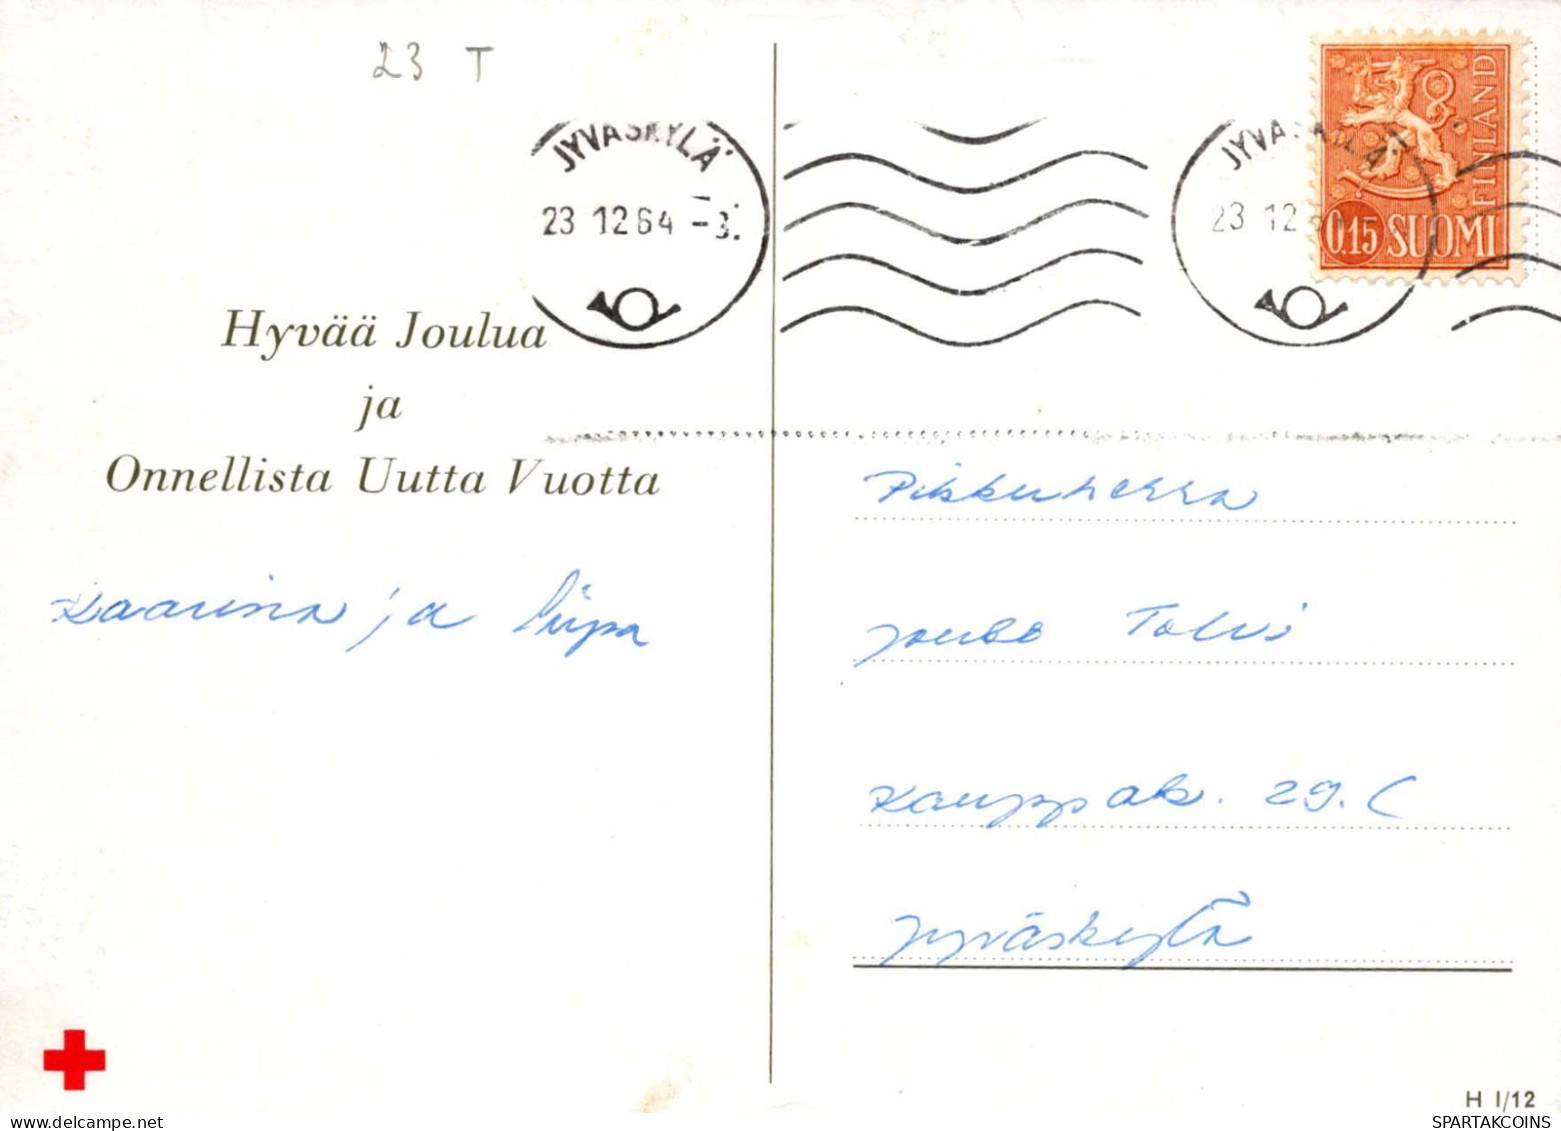 23 T
JYVÄSKYLÄ
23 12 64
JYVÄSKYLÄ
23 12
FINLAND
0.15 SUOMI
Hyvää Joulua
ja
Onnellista Uutta Vuotta
Kaarina ja
Pikkuherra
Jouko Talvi
Kauppak. 29. C
Jyväskylä
H I/12
SPARTAKCOINS